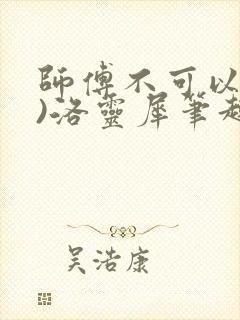 師傅不可以
)洛靈犀筆趣
吳浩康